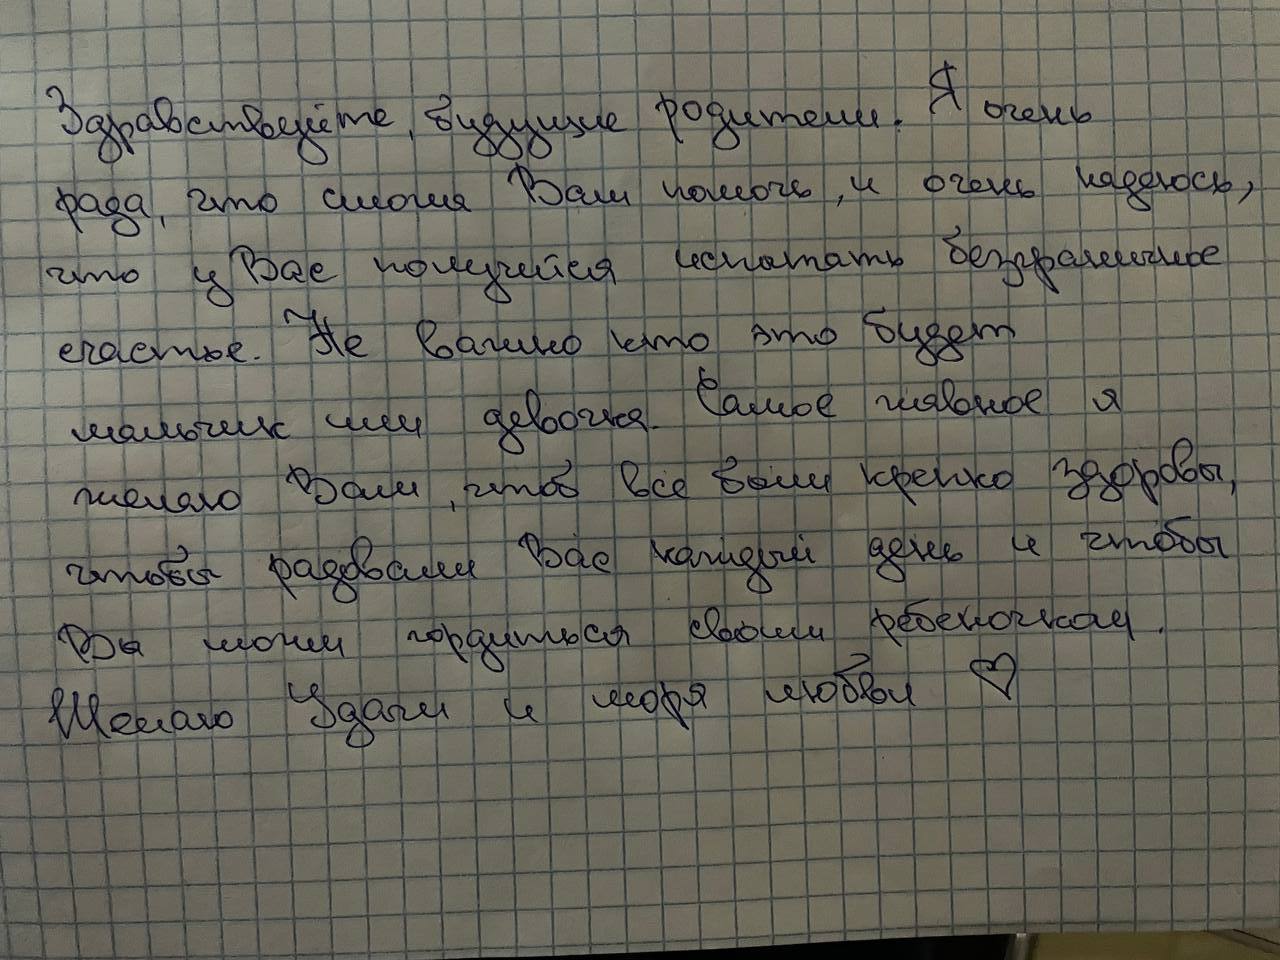 Здравствуйте, будущие родители. Я очень
рада, что смогла Вам помочь, и очень надеюсь,
что у Вас получится испытать безграничное
счастье. Не важно кто это будет
мальчик или девочка. Самое главное я
желаю Вам, чтоб все были крепко здоровы,
чтобы радовали Вас каждый день и чтобы
Вы могли гордиться своим ребеночком.
Желаю Удачи и моря любви ♡